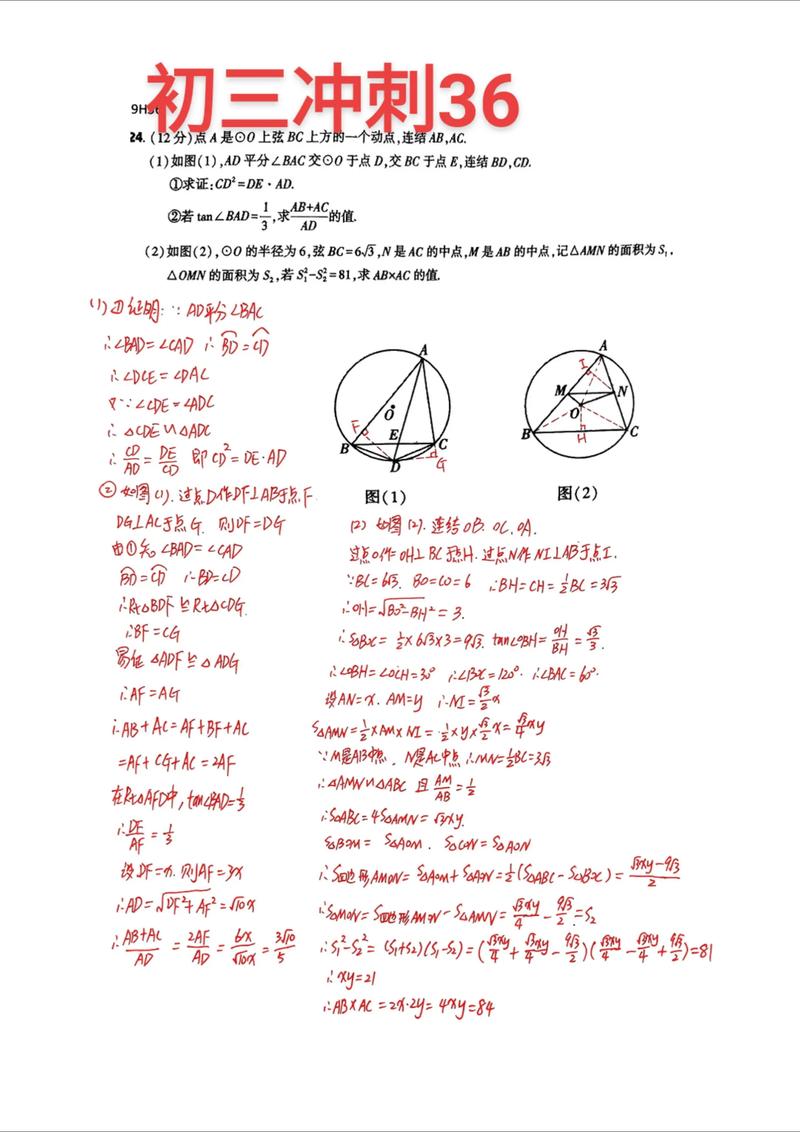 初三冲刺36
9H36
24. (12分)点A是⊙O上弦BC上方的一个动点,连结AB,AC.
(1)如图(1),AD平分∠BAC交⊙O于点D,交BC于点E,连结BD,CD.
①求证:CD²=DE·AD.
②若tan∠BAD=1/3,求(AB+AC)/AD的值.
(2)如图(2),⊙O的半径为6,弦BC=6√3,N是AC的中点,M是AB的中点,记△AMN的面积为S₁,
△OMN的面积为S₂,若S₁²-S₂²=81,求AB×AC的值.
(1)①证明:∵AD平分∠BAC
∴∠BAD=∠CAD ∴BD=CD
∴∠DCE=∠DAC
又∵∠CDE=∠ADC
∴△CDE∽△ADC
∴CD/AD=DE/CD 即CD²=DE·AD
②如图(1).过点D作DF⊥AB于点F.
DG⊥AC于点G.则DF=DG
由①知∠BAD=∠CAD
BD=CD ∴BD=CD
∴Rt△BDF≌Rt△CDG.
∴BF=CG
易证△ADF≌△ADG
∴AF=AG
∴AB+AC=AF+BF+AC
=AF+CG+AC=2AF
在Rt△AFD中,tan∠BAD=1/3
∴DF/AF=1/3
设DF=x.则AF=3x
∴AD=√(DF²+AF²)=√10x
∴(AB+AC)/AD=2AF/AD=6x/√10x=3√10/5
A
F
O
B
E
C
D
G
图(1)
A
I
M
N
O
B
H
C
图(2)
(2)如图(2).连结OB.OC.OA.
过点O作OH⊥BC于点H.过点N作NI⊥AB于点I.
∵BC=6√3.BO=CO=6 ∴BH=CH=1/2BC=3√3
∴OH=√(BO²-BH²)=3.
∴S△BOC=1/2×6√3×3=9√3.tan∠OBH=OH/BH=√3/3.
∴∠OBH=∠OCH=30° ∴∠BOC=120°∴∠BAC=60°.
设AN=x.AM=y ∴NI=√3/2x
S△AMN=1/2×AM×NI=1/2×y×√3/2x=√3/4xy
∵M是AB中点.N是AC中点∴MN=1/2BC=3√3
∴△AMN∽△ABC 且AM/AB=1/2
∴S△ABC=4S△AMN=√3xy.
S△BOM=S△AOM.S△CON=S△AON
∴S四边形AMON=S△AOM+S△AON=1/2(S△ABC-S△BOC)=(√3xy-9√3)/2
∴S△MON=S四边形AMON-S△AMN=√3xy/4-9√3/2=S₂
∴S₁²-S₂²=(S₁+S₂)(S₁-S₂)=(√3xy/4+√3xy/4-9√3/2)(√3xy/4-√3xy/4+9√3/2)=81
∴xy=21
∴AB×AC=2x·2y=4xy=84